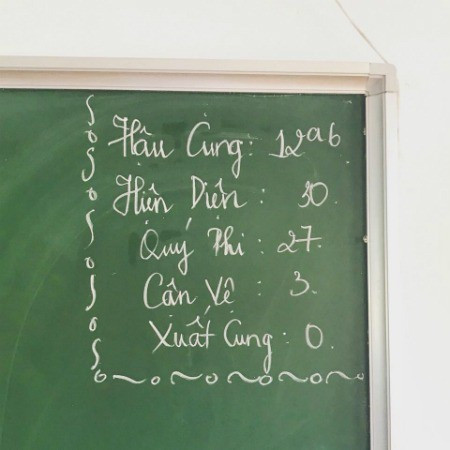 Hậu Cung: 12a6
Hiện Diện: 30.
Quý Phi: 27.
Cẩn Vệ: 3.
Xuất Cung: 0.